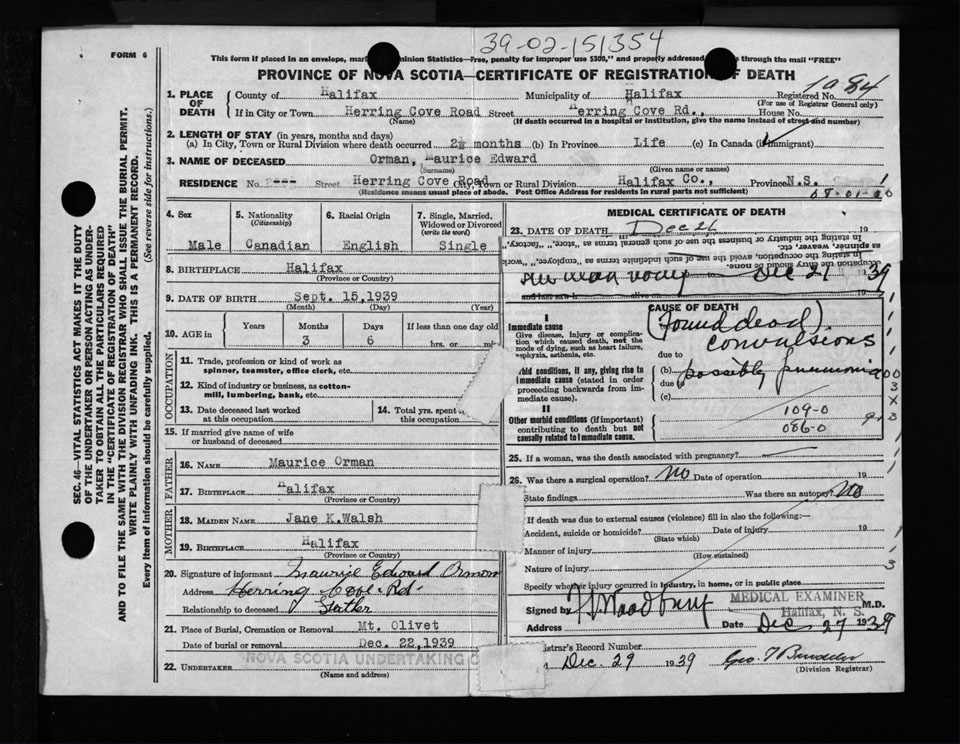 39-02-151354
FORM 6
This form if placed in an envelope, mar Dominion Statistics—Free, penalty for improper use $300," and properly addressed s through the mail "FREE"
PROVINCE OF NOVA SCOTIA—CERTIFICATE OF REGISTRATION OF DEATH
1984
1. PLACE OF DEATH County of Halifax Municipality of Halifax Registered No.
(For use of Registrar General only)
If in City or Town Herring Cove Road Street Herring Cove Rd., House No.
(Name) (If death occurred in a hospital or institution, give the name instead of street and number)
2. LENGTH OF STAY (in years, months and days)
(a) In City, Town or Rural Division where death occurred 2½ months (b) In Province Life (c) In Canada (if immigrant)
3. NAME OF DECEASED Orman, Maurice Edward
(Surname) (Given name or names)
RESIDENCE No. ---- Street Herring Cove Road City, Town or Rural Division Halifax Co., Province N.S.
(Residence means usual place of abode. Post Office Address for residents in rural parts not sufficient)
4. Sex Male
5. Nationality (Citizenship) Canadian
6. Racial Origin English
7. Single, Married, Widowed or Divorced (write the word) Single
8. BIRTHPLACE Halifax
(Province or Country)
9. DATE OF BIRTH Sept. 15,1939
(Month) (Day) (Year)
10. AGE in Years Months Days If less than one day old
3 6 hrs. or mi
OCCUPATION
11. Trade, profession or kind of work as
spinner, teamster, office clerk, etc.
12. Kind of industry or business, as cotton-
mill, lumbering, bank, etc.
13. Date deceased last worked
at this occupation
14. Total yrs. spent
this occupation
15. If married give name of wife
or husband of deceased
FATHER
16. NAME Maurice Orman
17. BIRTHPLACE Halifax
(Province or Country)
MOTHER
18. MAIDEN NAME Jane K.Walsh
19. BIRTHPLACE Halifax
(Province or Country)
20. Signature of informant Maurice Edward Orman
Address Herring Cove Rd.
Relationship to deceased Father
21. Place of Burial, Cremation or Removal Mt. Olivet
Date of burial or removal Dec. 22,1939
22. UNDERTAKER NOVA SCOTIA UNDERTAKING C
(Name and address)
MEDICAL CERTIFICATE OF DEATH
23. DATE OF DEATH Dec 21 19
spinner, weaver, etc.
In stating the industry or business the use of such general terms as "store, "factory,"
In stating the occupation, avoid the use of such indefinite terms as "employee," "work
occupation the entry should be none.
Dec 21 39
and last saw h alive on 19
CAUSE OF DEATH
I
Immediate cause
Give disease, injury or complica-
tion which caused death, not the
mode of dying, such as heart failure,
asphyxia, asthenia, etc.
(Found dead).
convulsions
due to
rbid conditions, if any, giving rise to
immediate cause (stated in order
proceeding backwards from im-
mediate cause).
(b) possibly pneumonia
due to
(c)
II
Other morbid conditions (if important)
contributing to death but not
causally related to immediate cause.
109-0
086-0
25. If a woman, was the death associated with pregnancy?
26. Was there a surgical operation? No Date of operation 19
State findings Was there an autopsy? No
If death was due to external causes (violence) fill in also the following:—
Accident, suicide or homicide? Date of injury 19
(State which)
Manner of injury
(How sustained)
Nature of injury
Specify whether injury occurred in industry, in home, or in public place
MEDICAL EXAMINER
Halifax, N. S.
Signed by M.D.
Address Date Dec 27 1939
strar's Record Number
Dec. 29 1939
(Division Registrar)
SEC. 46—VITAL STATISTICS ACT MAKES IT THE DUTY
OF THE UNDERTAKER OR PERSON ACTING AS UNDER-
TAKER TO OBTAIN ALL THE PARTICULARS REQUIRED
IN THE "CERTIFICATE OF REGISTRATION OF DEATH"
AND TO FILE THE SAME WITH THE DIVISION REGISTRAR WHO SHALL ISSUE THE BURIAL PERMIT.
WRITE PLAINLY WITH UNFADING INK. THIS IS A PERMANENT RECORD.
Every item of information should be carefully supplied. (See reverse side for instructions.)